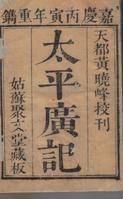 嘉慶丙寅年重鐫
天都黃曉峰校刊
太平廣記
姑蘇聚文堂藏板